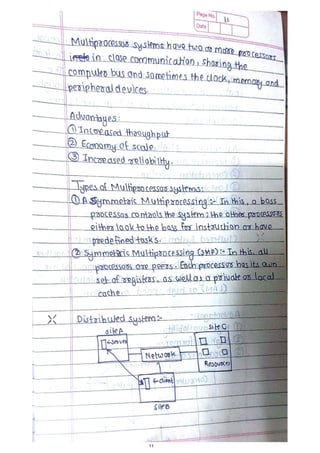 Page No. 11
Date
Multiprocessor systems have two or more processors
in close communication, sharing the
computer bus and sometimes the clock, memory and
peripheral devices
Advantages:
① Increased throughput
② Economy of scale.
③ Increased reliability.
Types of Multiprocessor systems:
① ASymmetric Multiprocessing :- In this, a boss
processor controls the system; the other processors
either look to the boss for instruction or have
predefined tasks.
② Symmetric Multiprocessing (SMP) :- In this, all
processors are peers. Each processor has its own
set of registers, as well as a private or local
cache.
Distributed system:-
site A
site C
server
Network
Resources
client
site B
11